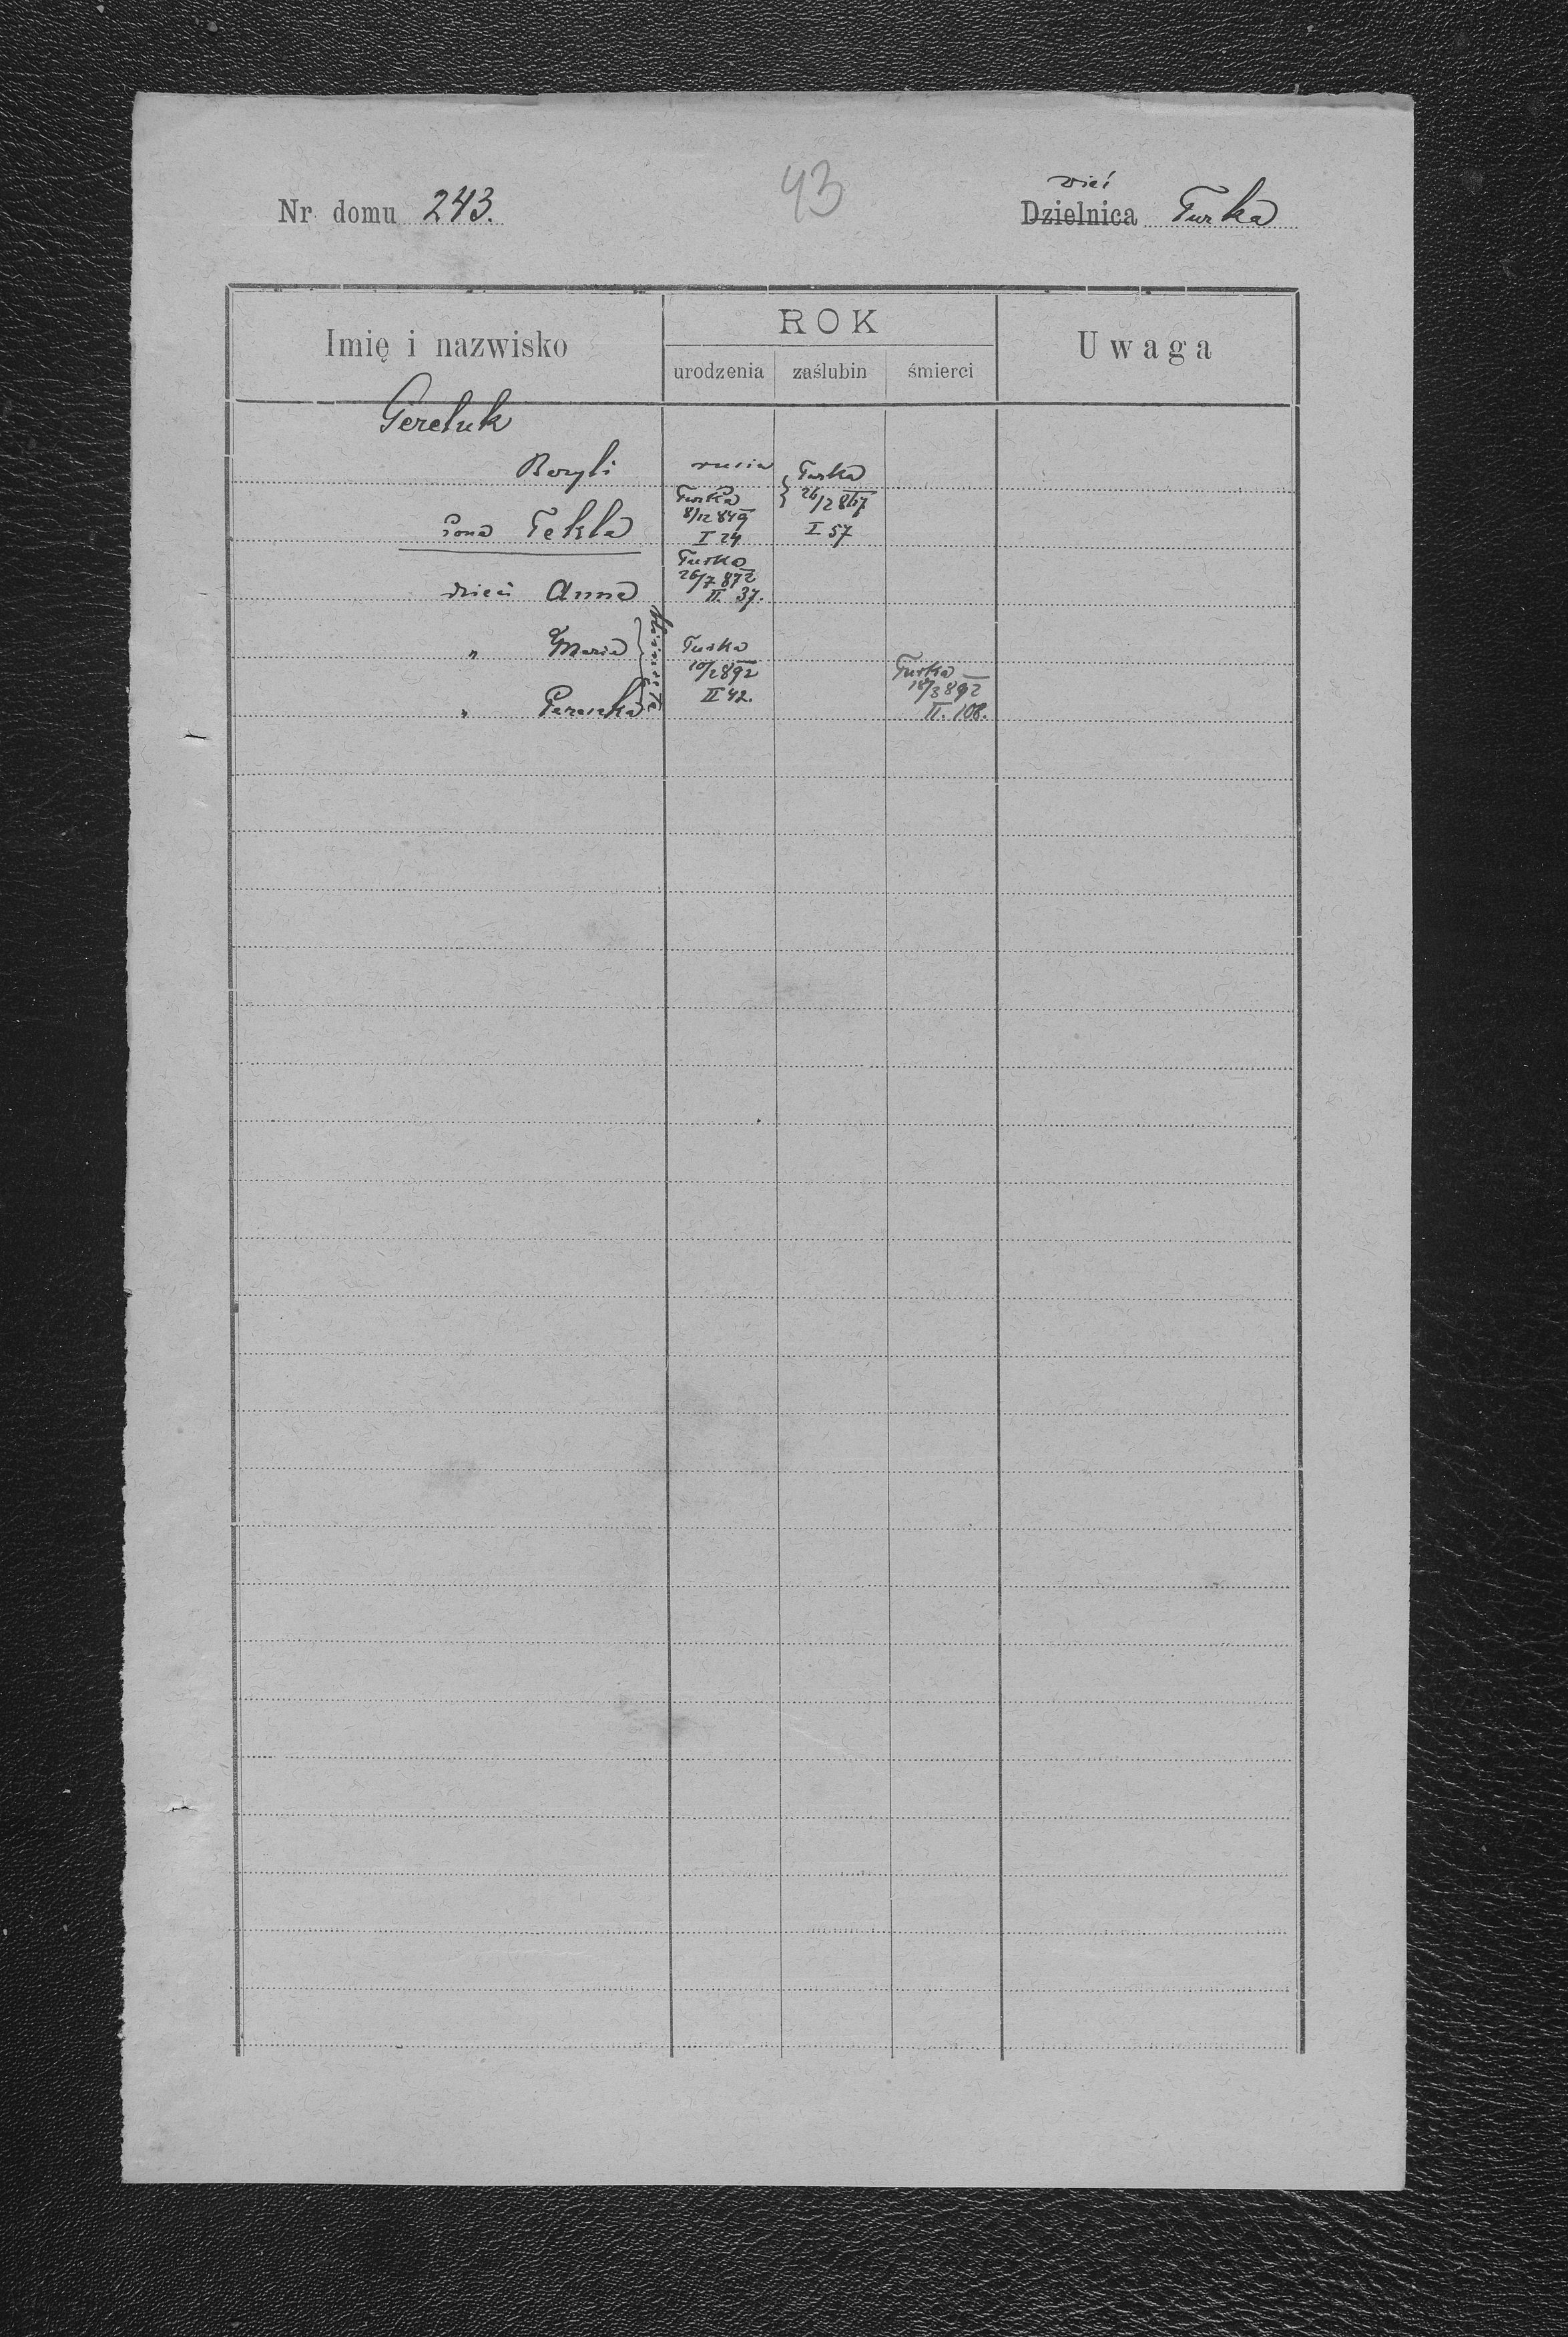 43
Nr domu 243.
wieś
Dzielnica Turka
Imię i nazwisko
ROK
urodzenia zaślubin śmierci
Uwaga
Gereluk
Bazyli
Turka
26/2 867
I 57
żona Tekla
Turka
8/12 849
I 24
dzieci Anna
Turka
26/7 872
II 37.
" Maria
" Paraszka
bliźnięta
Turka
10/2 892
II 42.
Turka
18/3 892
II. 108.